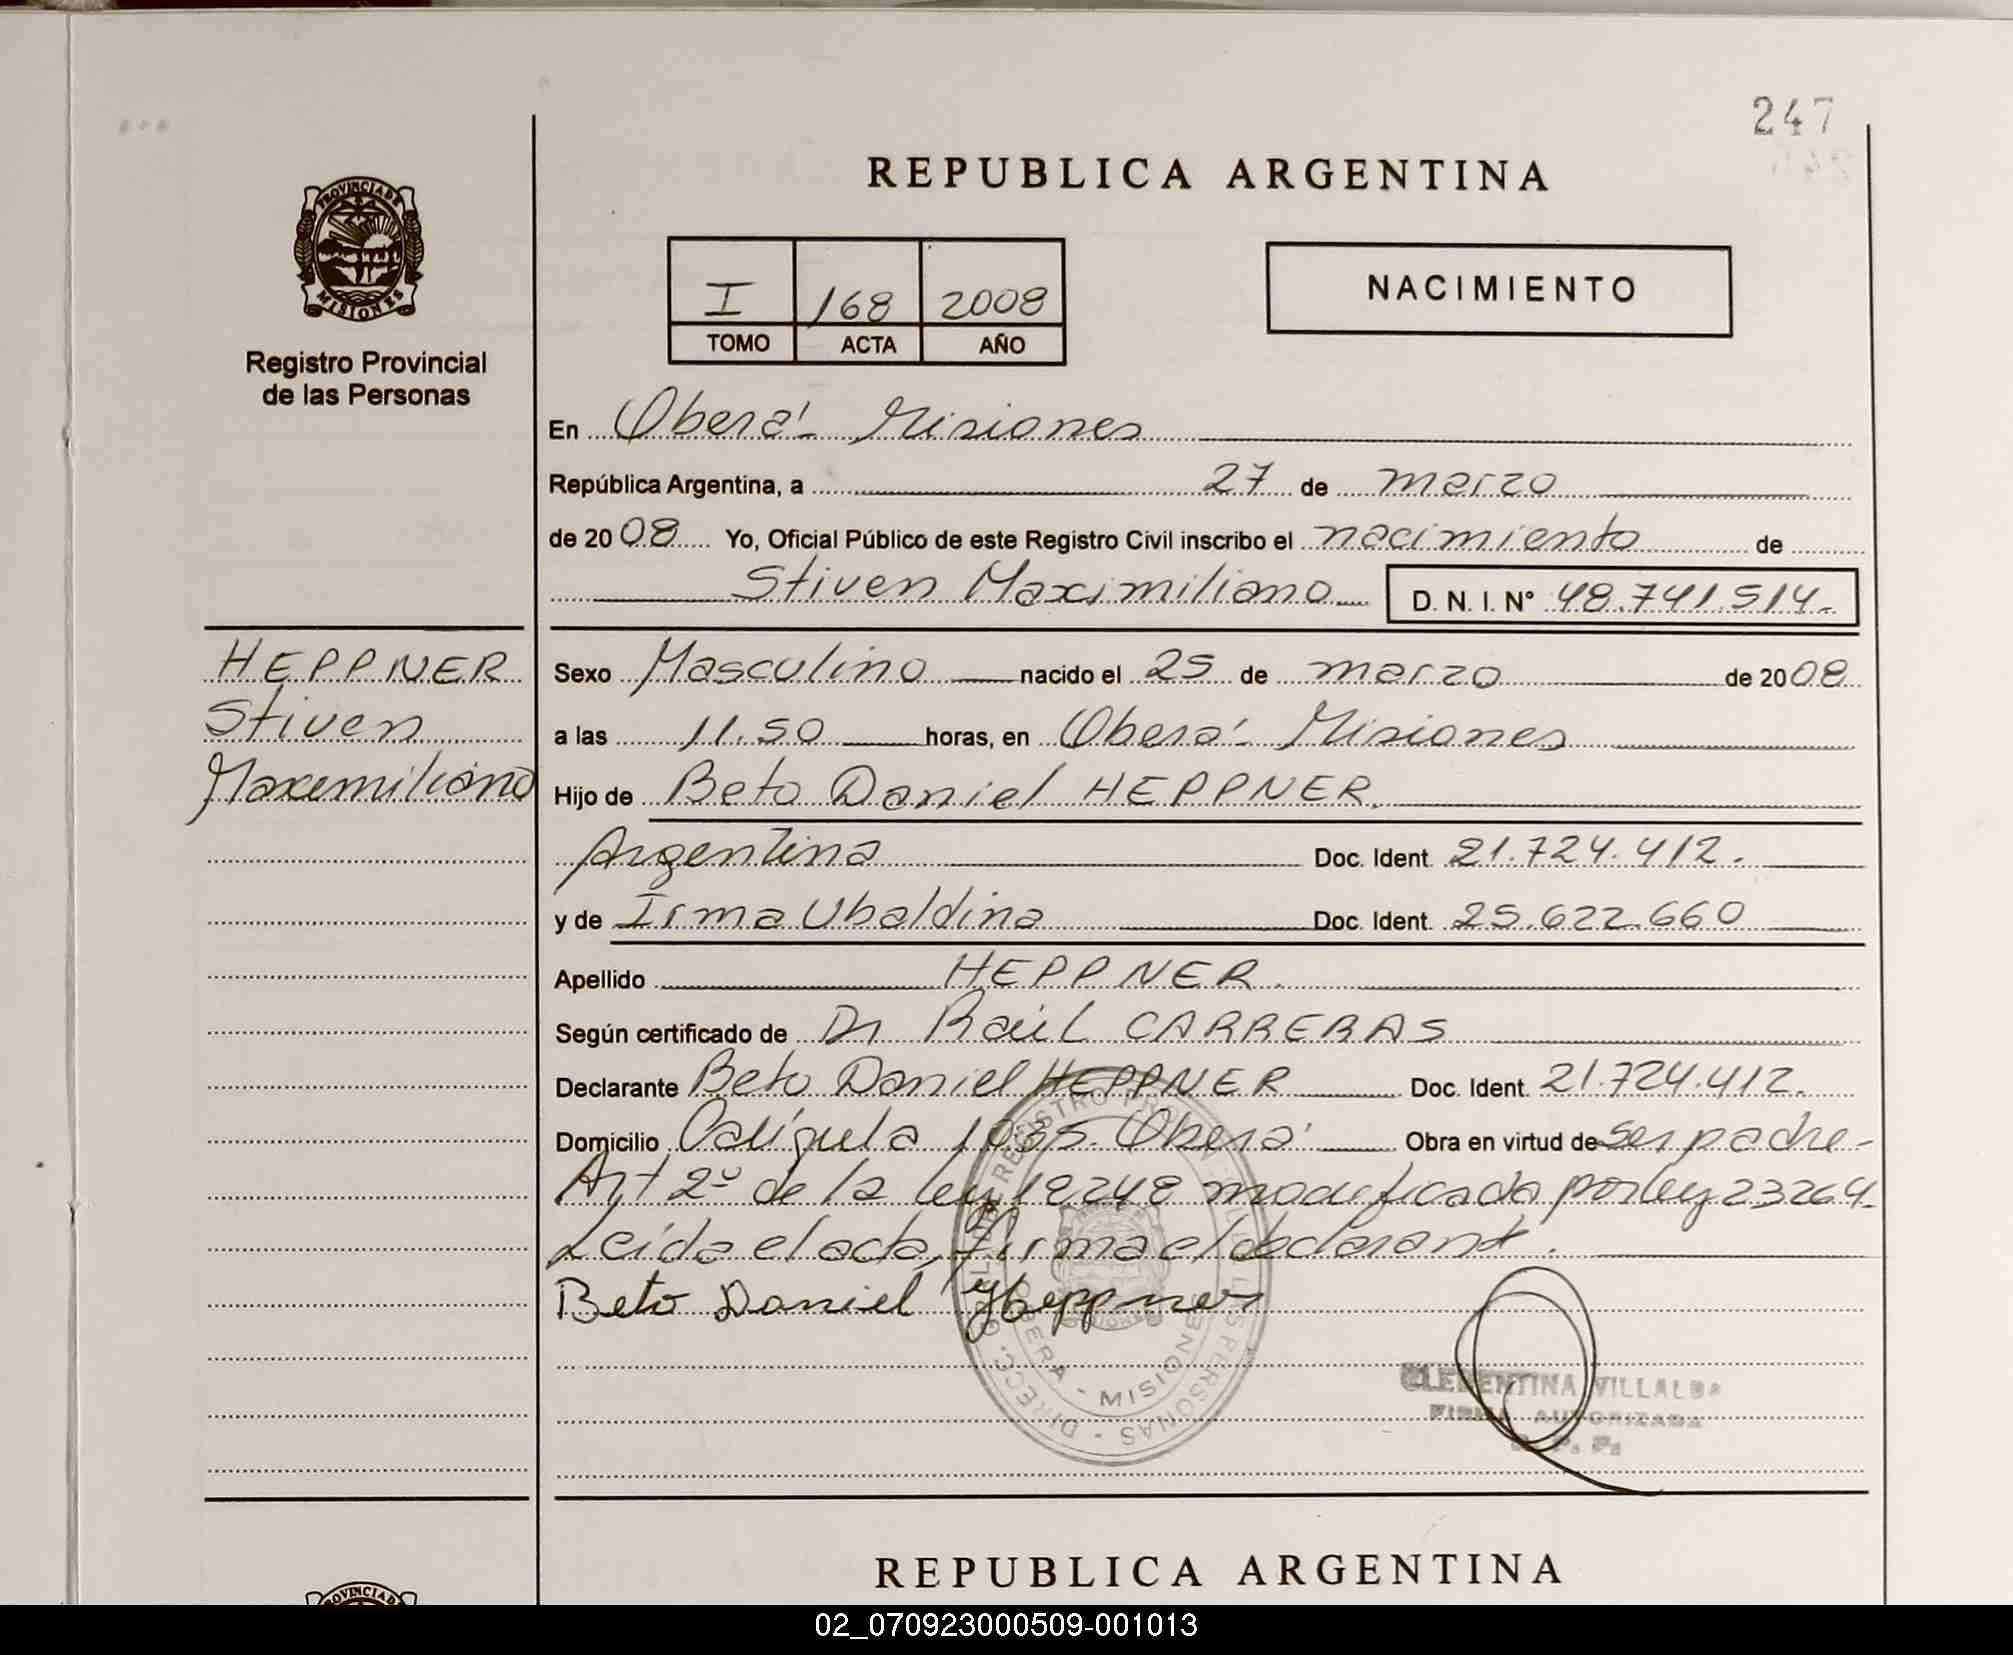 247
PROVINCIA DE
MISIONES
Registro Provincial
de las Personas
REPUBLICA ARGENTINA
I 168 2008
TOMO ACTA AÑO
NACIMIENTO
En Oberá - Misiones
República Argentina, a 27 de marzo
de 2008 Yo, Oficial Público de este Registro Civil inscribo el nacimiento de
Stiven Maximiliano D. N. I. N° 48.741.514.-
HEPPNER
Stiven
Maxemiliano
Sexo Masculino nacido el 25 de marzo de 2008
a las 11.50 horas, en Oberá - Misiones
Hijo de Beto Daniel HEPPNER.
Argentina Doc. Ident. 21.724.412.
y de Irma Ubaldina Doc. Ident. 25.622.660
Apellido HEPPNER.
Según certificado de Dr Raúl CARRERAS
Declarante Beto Daniel HEPPNER Doc. Ident. 21.724.412.
Domicilio 1035. Oberá Obra en virtud de ser padre-
Art 2º de la ley 18248 modificada por ley 23264.
Leída el acta, firma el declarant.
Beto Daniel Heppner
OBERA - MISIONES
CLEMENTINA VILLALBA
FIRMA AUTORIZADA
R. P. P.
REPUBLICA ARGENTINA
PROVINCIA
02_070923000509-001013